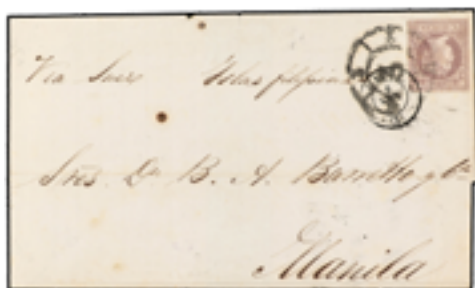 Via Suez Islas filipinas
Sres. Dn B. A. Barretto y Ca
Manila